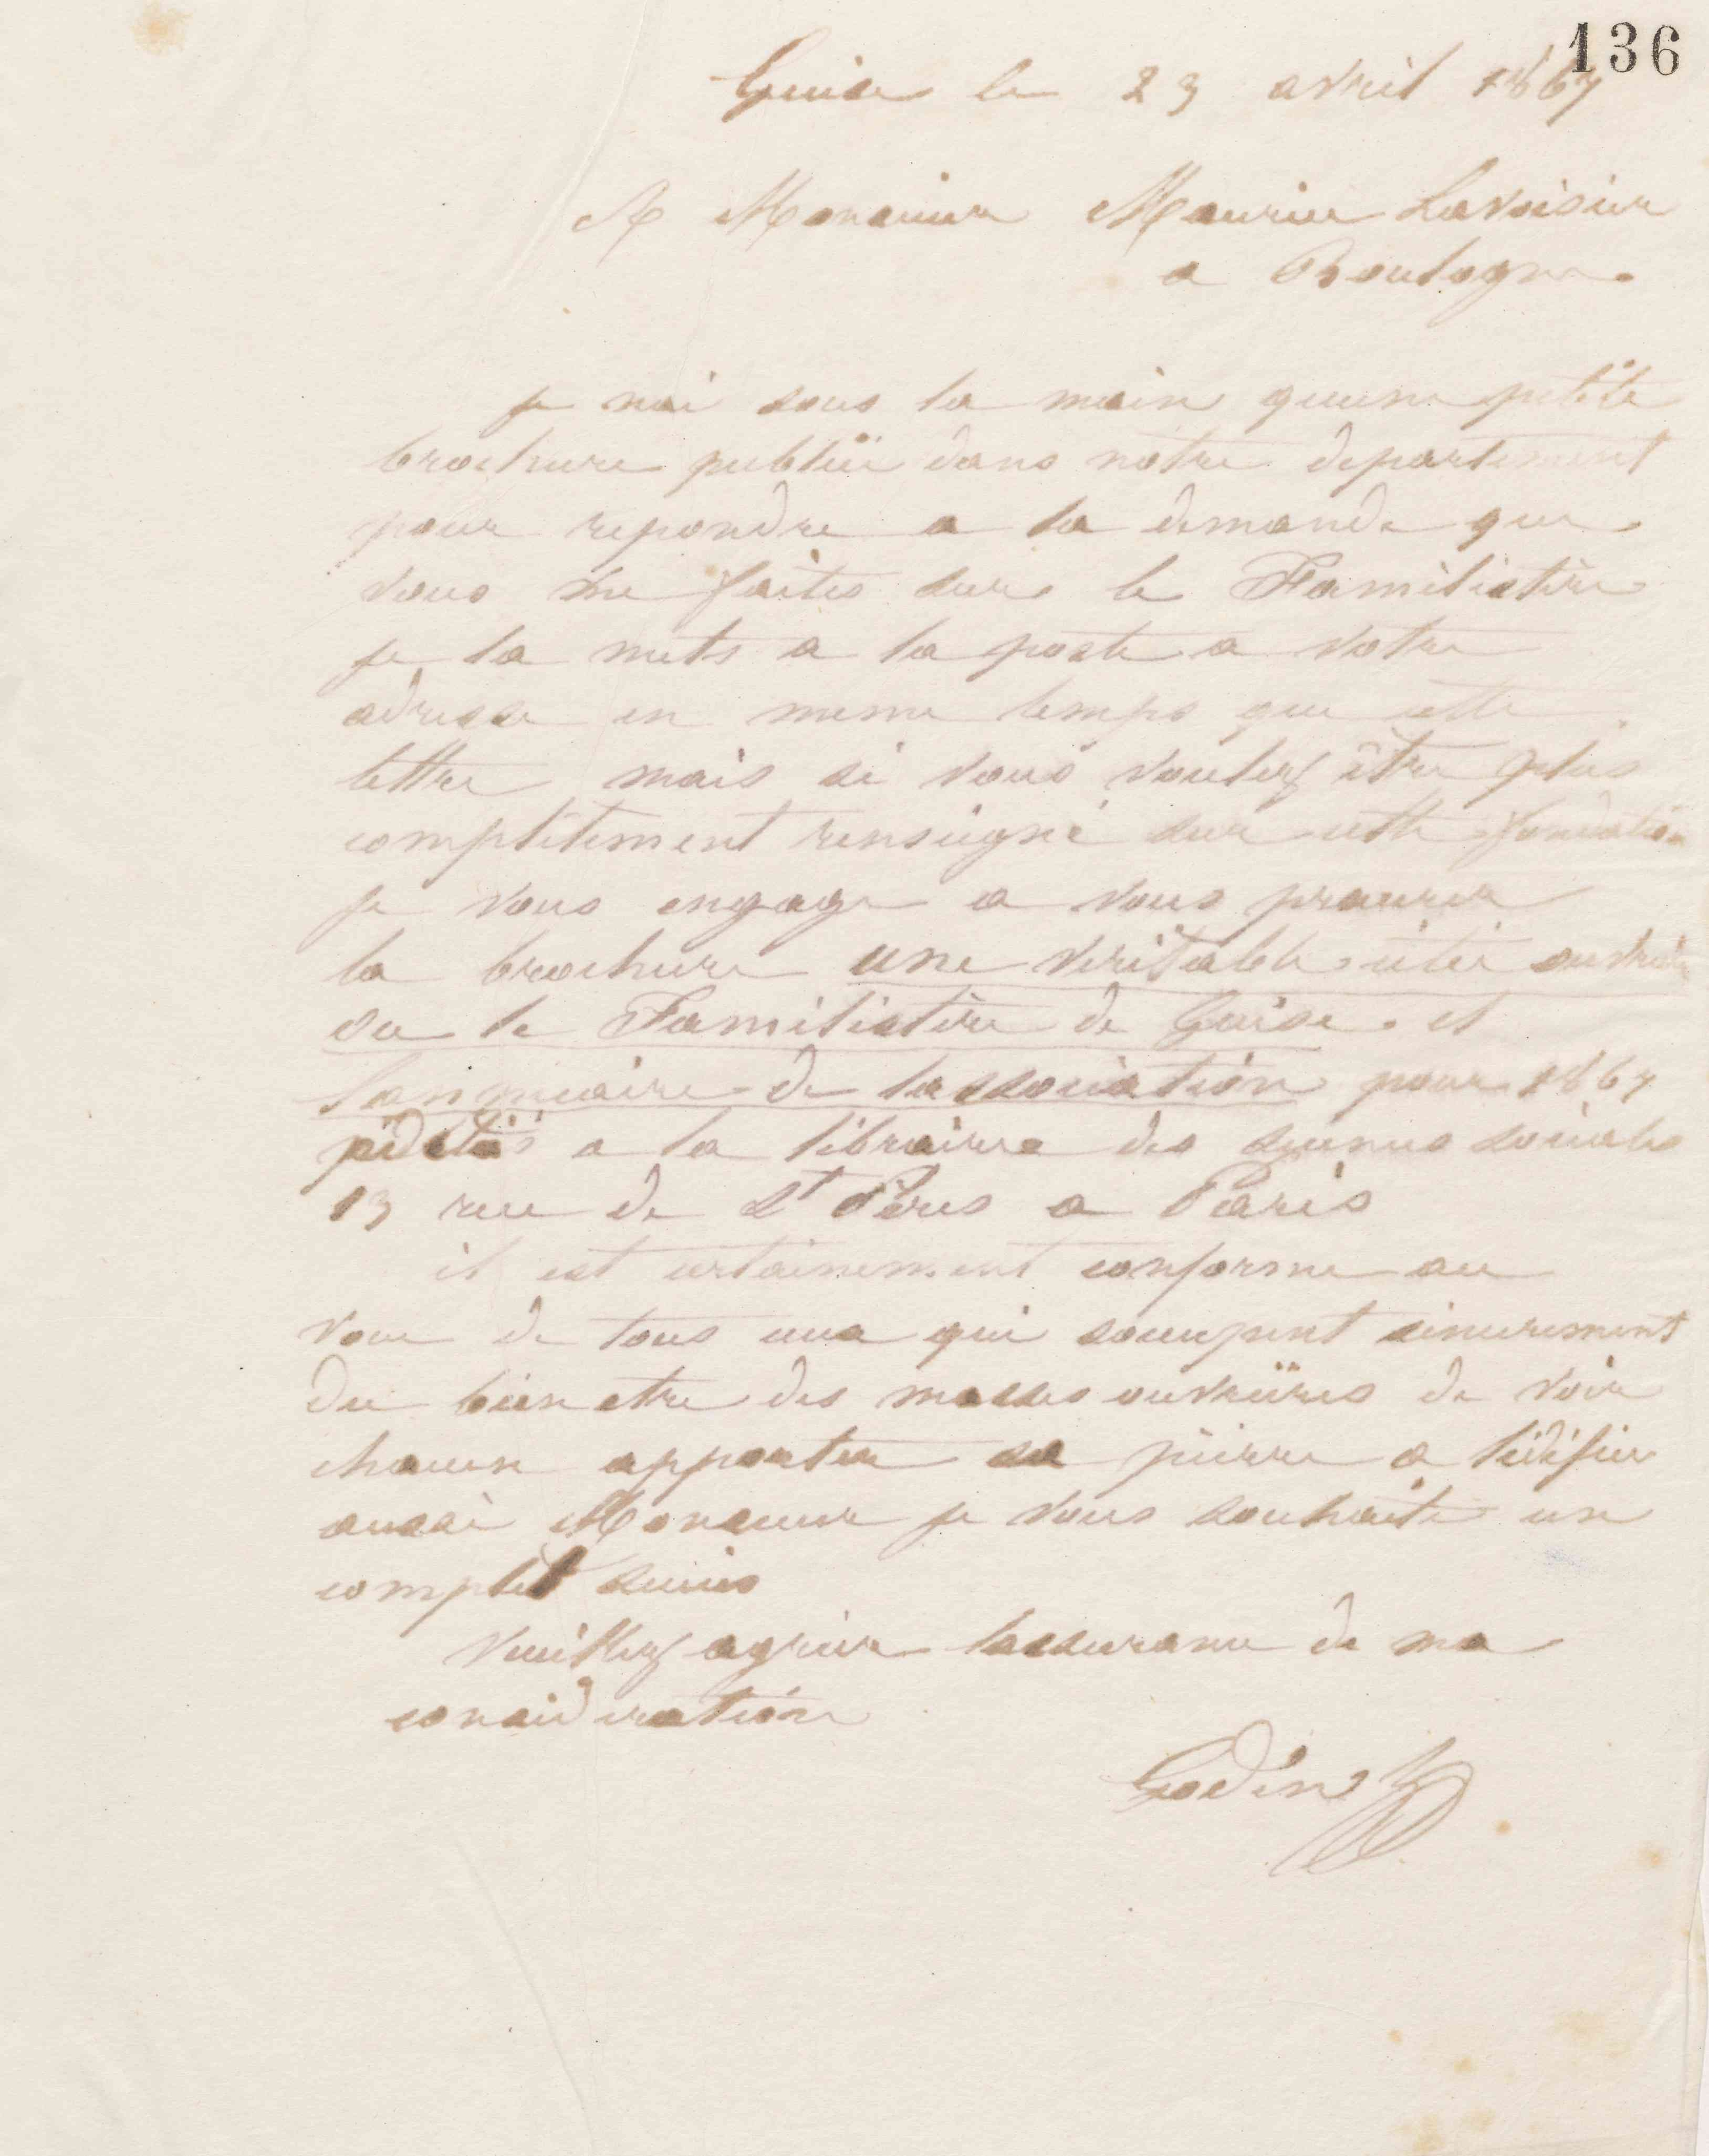 136
Guise le 23 avril 1867
A Monsieur Maurice Lavoisier
a Boulogne.
je nai sous la main quune petite
brochure publiée dans notre departement
pour repondre a la demande que
vous me faites sur le Familistère
je la mets a la poste a votre
adresse en meme temps que cette
lettre mais si vous voulez être plus
complètement renseigné sur cette fondation
je vous engage a vous procurer
la brochure une veritable citée ouvrière
ou le Familistère de Guise. et
lannuaire de lassociation pour 1867
a la librairie des sciences sociales
13 rue de St Pères a Paris
il est certainement conforme au
voeu de tous ceux qui soccupent sincerement
du bien etre des masses ouvrières de voir
chacun apporter sa pierre a lédifice
aussi Monsieur je vous souhaite un
complet succès
Veuillez agréer lassurance de ma
consideration
Godin